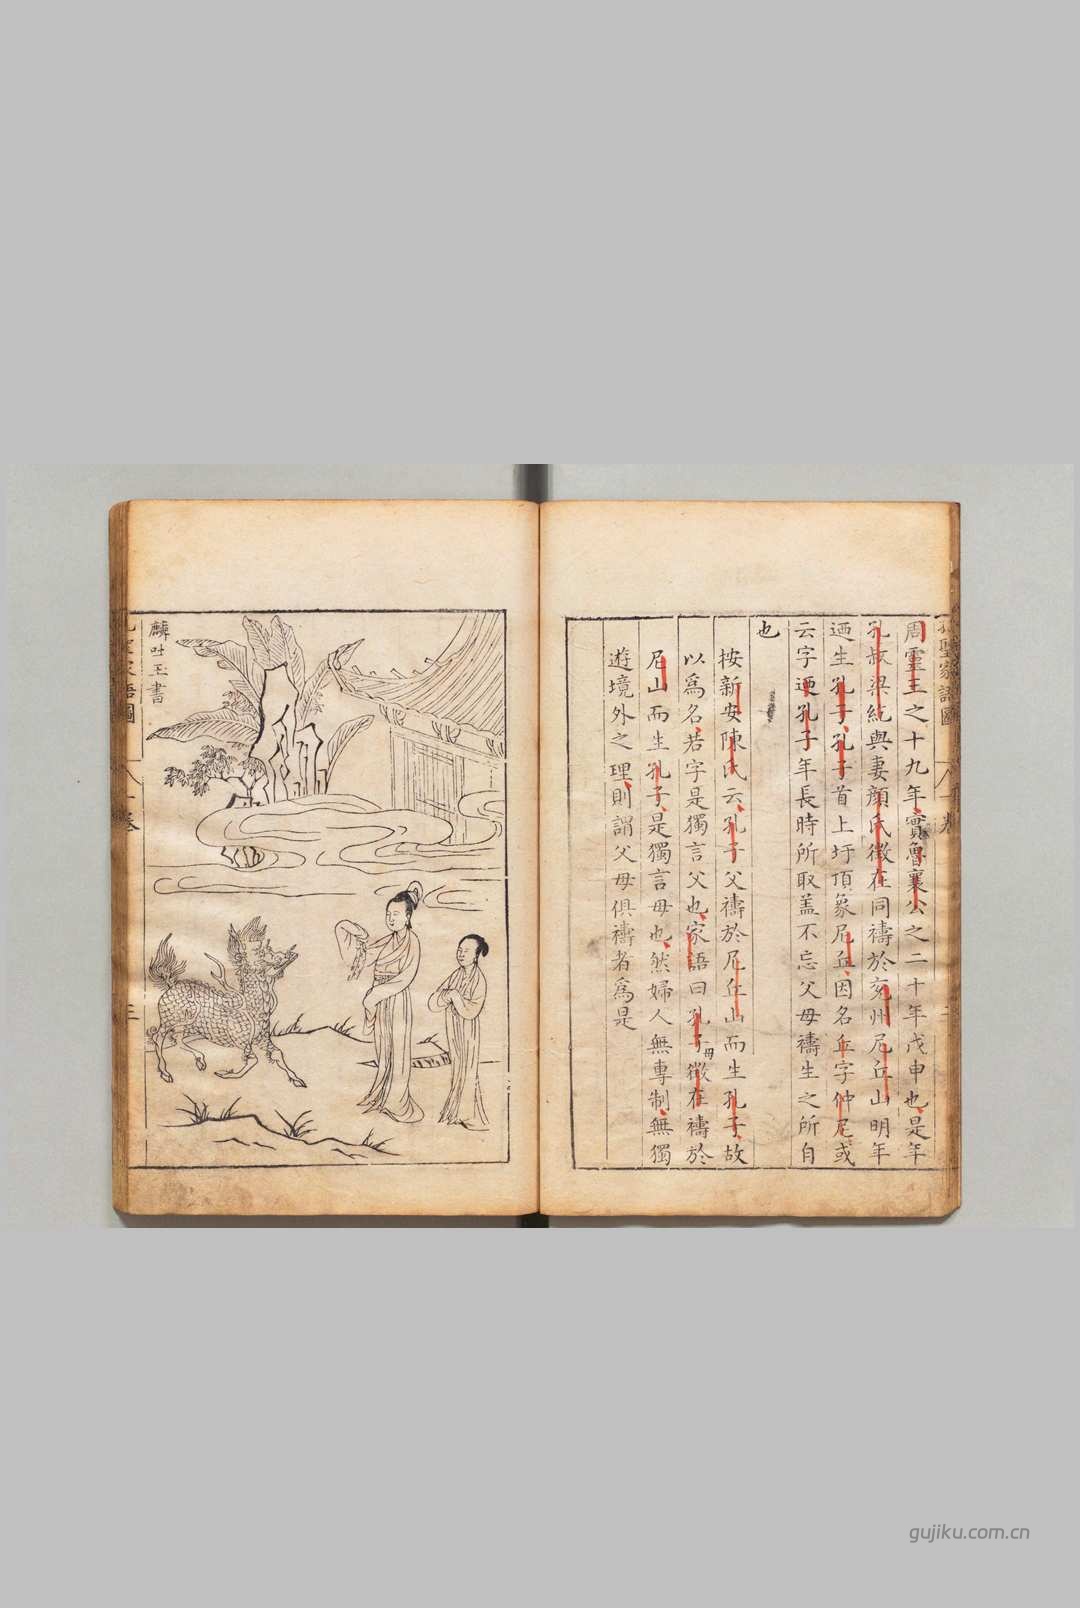 周靈王之十九年實魯襄公之二十年戊申也是年
孔叔梁紇與妻顏氏徵在同禱於兗州尼丘山明年
迺生孔子孔子首上圩頂象尼丘因名丘字仲尼或
云字迺孔子年長時所取盖不忘父母禱生之所自
也
按新安陳氏云孔子父禱於尼丘山而生孔子故
以爲名若字是獨言父也家語曰孔子母徵在禱於
尼山而生孔子是獨言母也然婦人無專制無獨
遊境外之理則謂父母俱禱者爲是
聖家語圖
卷
麟吐玉書
家語圖
卷一
gujiku.com.cn